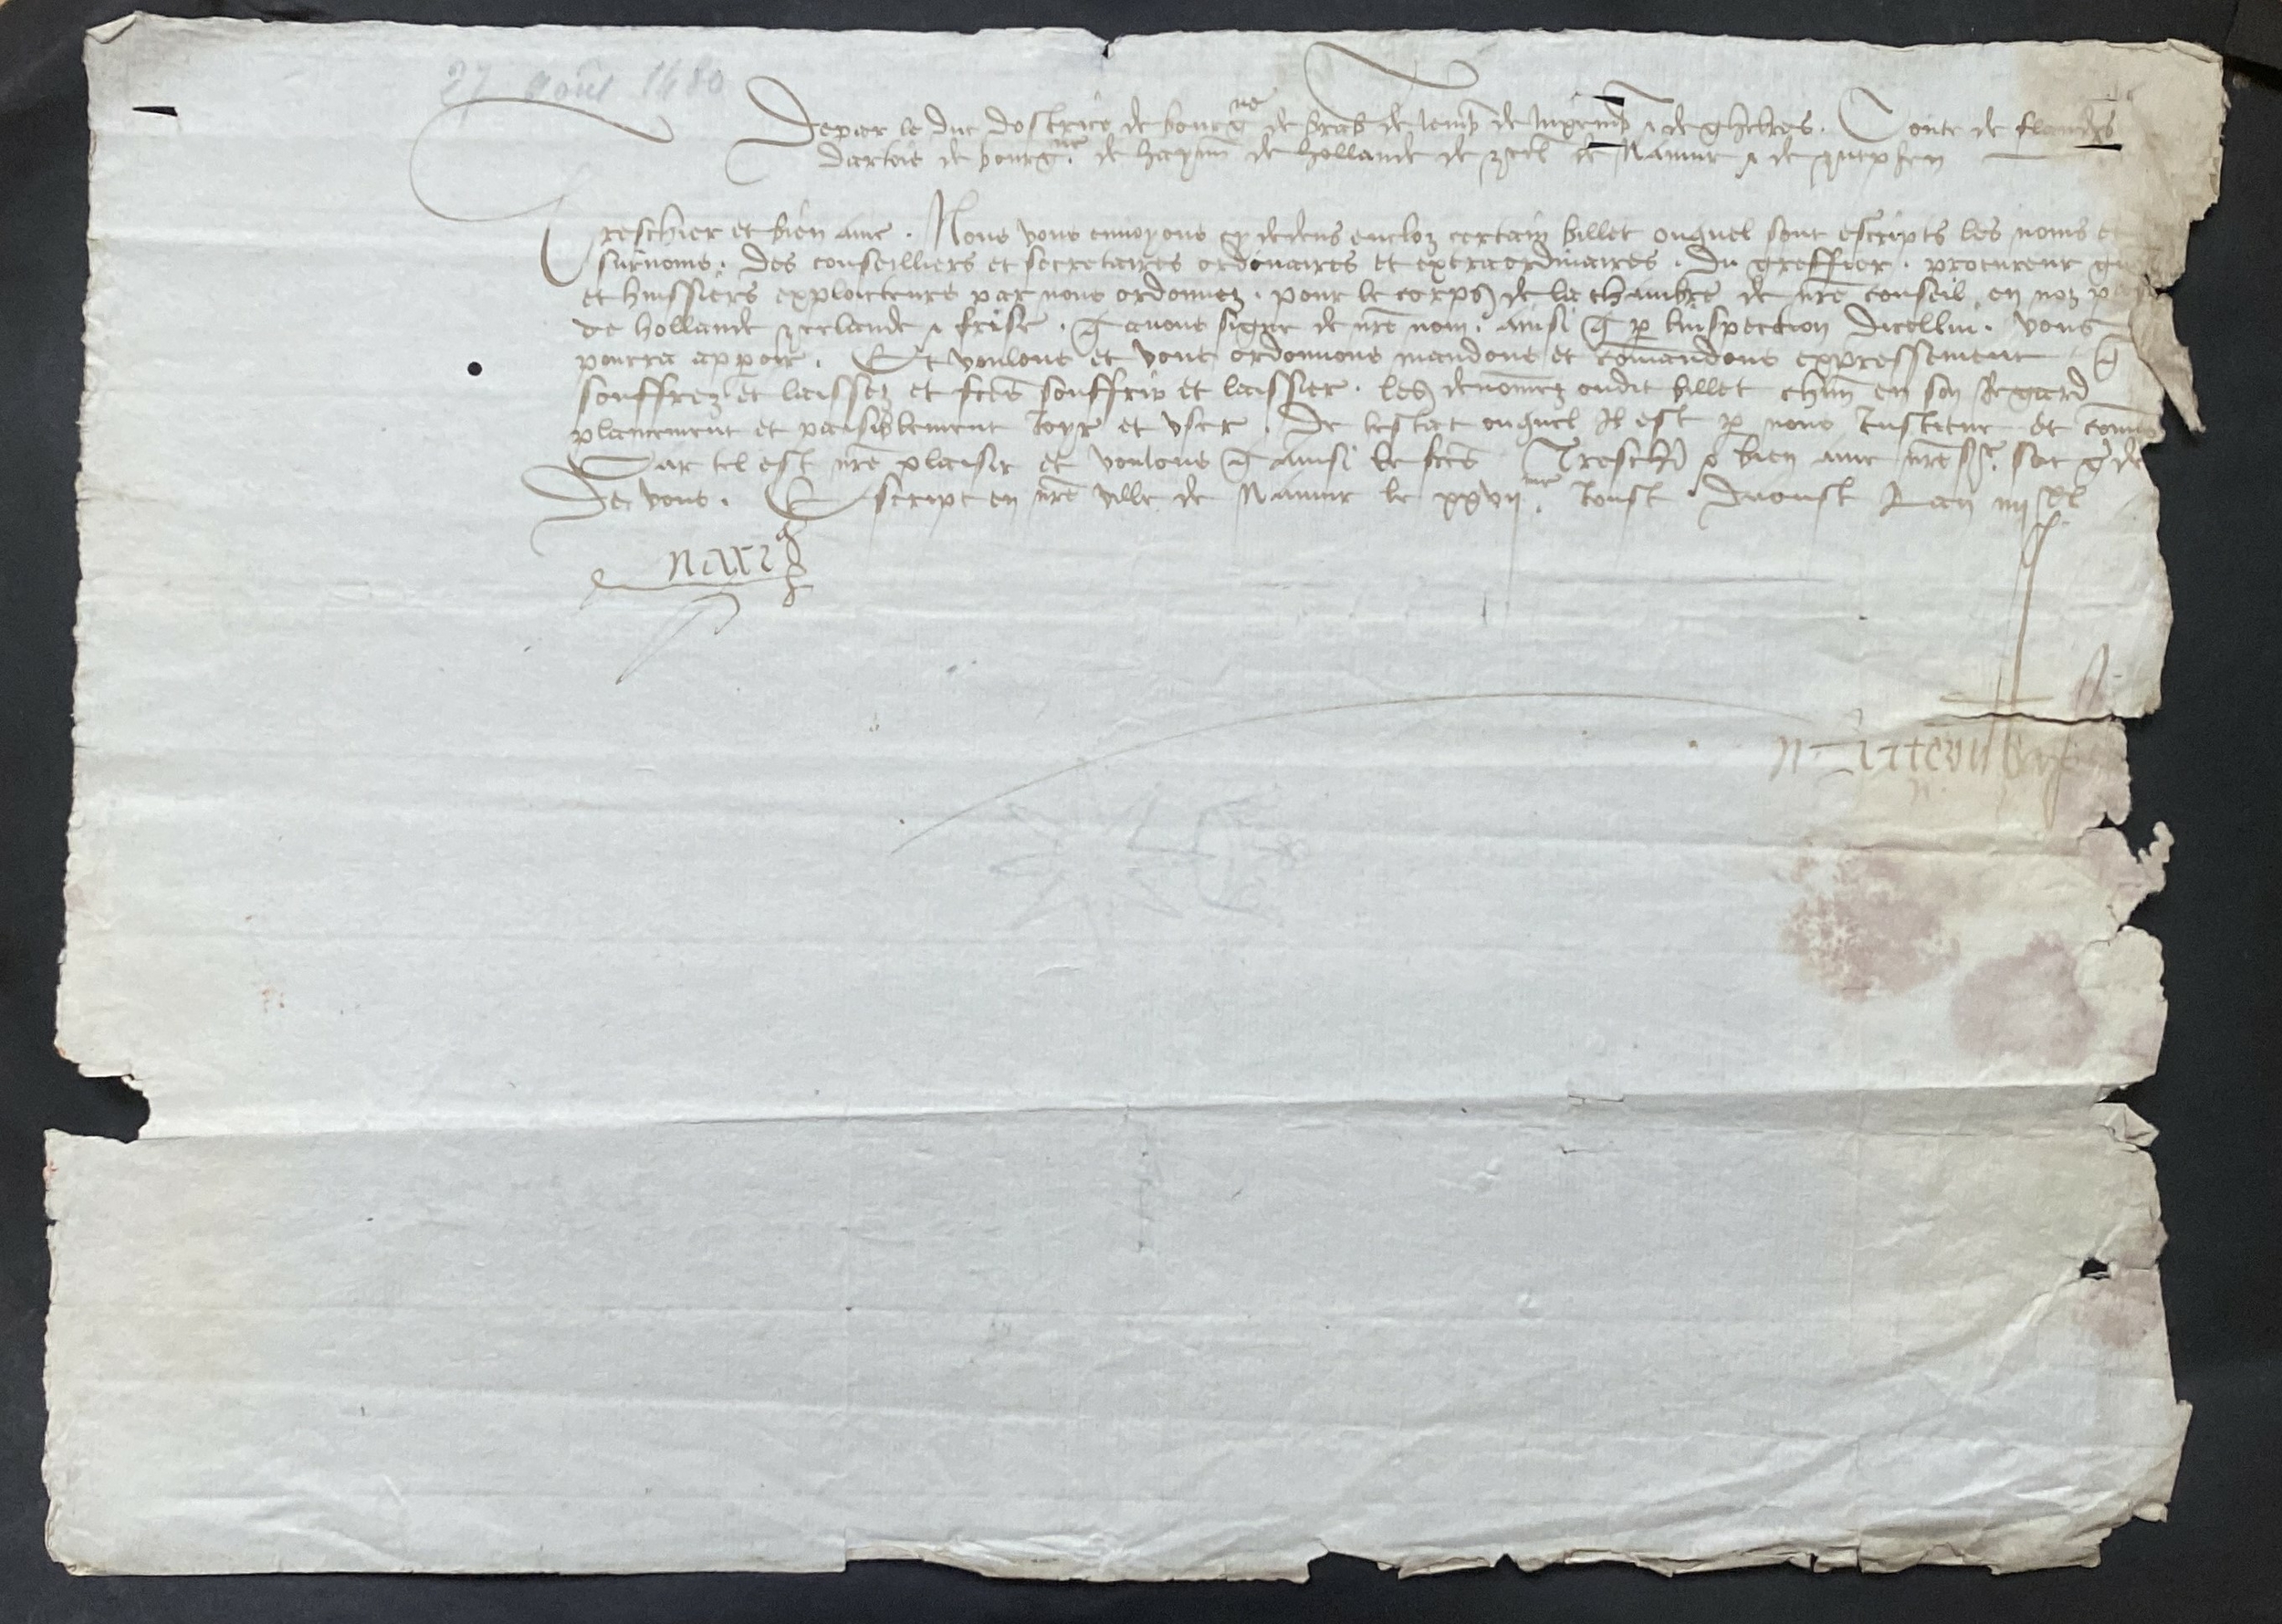 27 Août 1480
De par le duc dostrice de bourgne de brab de lemb de luxemb & de gheldres. Conte de flandres
dartois de bourgne de haynn de hollande de zeel de Namur & de zutphen
Treschier et bien ame. Nous vous enuoyons cy dedens encloz certain billet ouquel sont escripts les noms et
surnoms. des conseilliers et secretaires ordonaires et extraordinaires. du greffier. procureur
et huissiers exploicteurs par nous ordonnez. pour le corps de la chambre de nre conseil en noz
de hollande zeelande & frise. q auons signe de nre nom. ainsi q p linspection dicellui. vous
pourra apparoir. Et voulons et vous ordonnons mandons et comandons expressement q
souffrez et laissez et fctes souffrir et laissier. les denomez oudit billet chun en son regard
plainement et paisiblement Joyr et vser. de lestat ouquel Il est p nous Institue et comis
Car tel est nre plaisir et voulons q ainsi le fctes Treschr & bien ame nre sr. soit gde
de vous. Escript en nre ville de Namur le xxvij.me Jour daoust Lan iiijxx